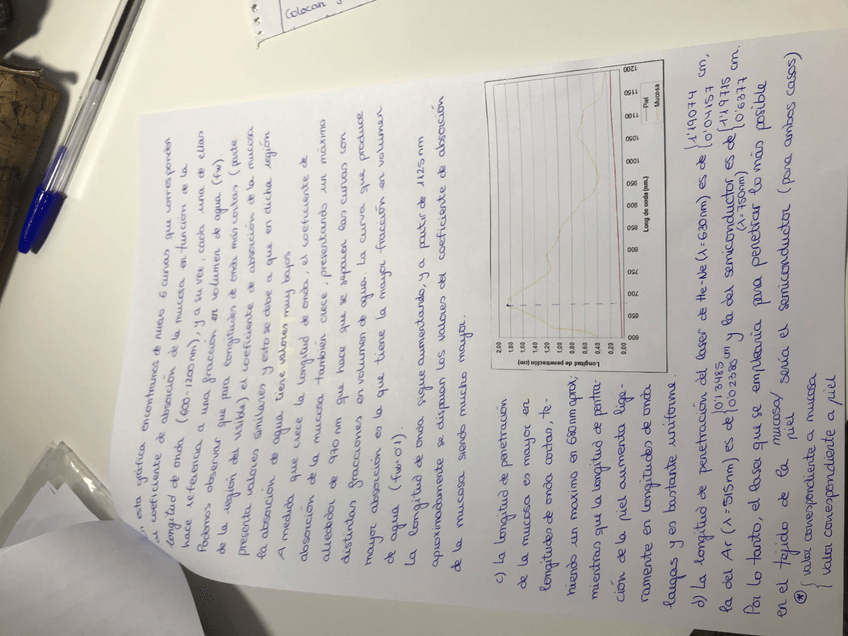 Colocan
En esta gráfica encontramos de nuevo 6 curvas que corresponden
al coeficiente de absorción de la mucosa en función de la
longitud de onda (600-1200nm), y a su vez, cada una de ellas
hace referencia a una fracción en volumen de agua (fw)
Podemos observar que para longitudes de onda más cortas (parte
de la región del visible) el coeficiente de absorción de la mucosa
presenta valores similares y esto se debe a que en dicha región
la absorción de agua tiene valores muy bajos
A medida que crece la longitud de onda, el coeficiente de
absorción de la mucosa también crece, presentando un máximo
alrededor de 970 nm que hace que se separen las curvas con
distintas fracciones en volumen de agua. La curva que produce
mayor absorción es la que tiene la mayor fracción en volumen
de agua (fw=0'1).
La longitud de onda sigue aumentando, y a partir de 1125nm
aproximadamente se disparan los valores del coeficiente de absorción
de la mucosa siendo mucho mayor.
c) La longitud de penetración
de la mucosa es mayor en
longitudes de onda cortas, te-
niendo un maximo en 680nm aprox,
mientras que la longitud de pentra-
ción de la piel aumenta lige-
ramente en longitudes de onda
largas y es bastante uniforme.
Longitud de penetración (cm)
2,00
1,80
1,60
1,40
1,20
1,00
0,80
0,60
0,40
0,20
0,00
600
650
700
750
800
850
900
950
1000
1050
1100
1150
1200
Long de onda (nm.)
Piel
Mucosa
d) La longitud de penetración del laser de He-Ne (λ=630nm) es de {1'19074 0'04157 cm,
la del Ar (λ=515nm) es de {0'13485 0'02385 cm y la del semiconductor es de {1'19715 0'6377 cm.
(λ=750nm)
Por lo tanto, el laser que se emplearía para penetrar lo más posible
en el tejido de la mucosa/piel sería el semiconductor (para ambos casos)
⊛ { valor correspondiente a mucosa
{ valor correspondiente a piel